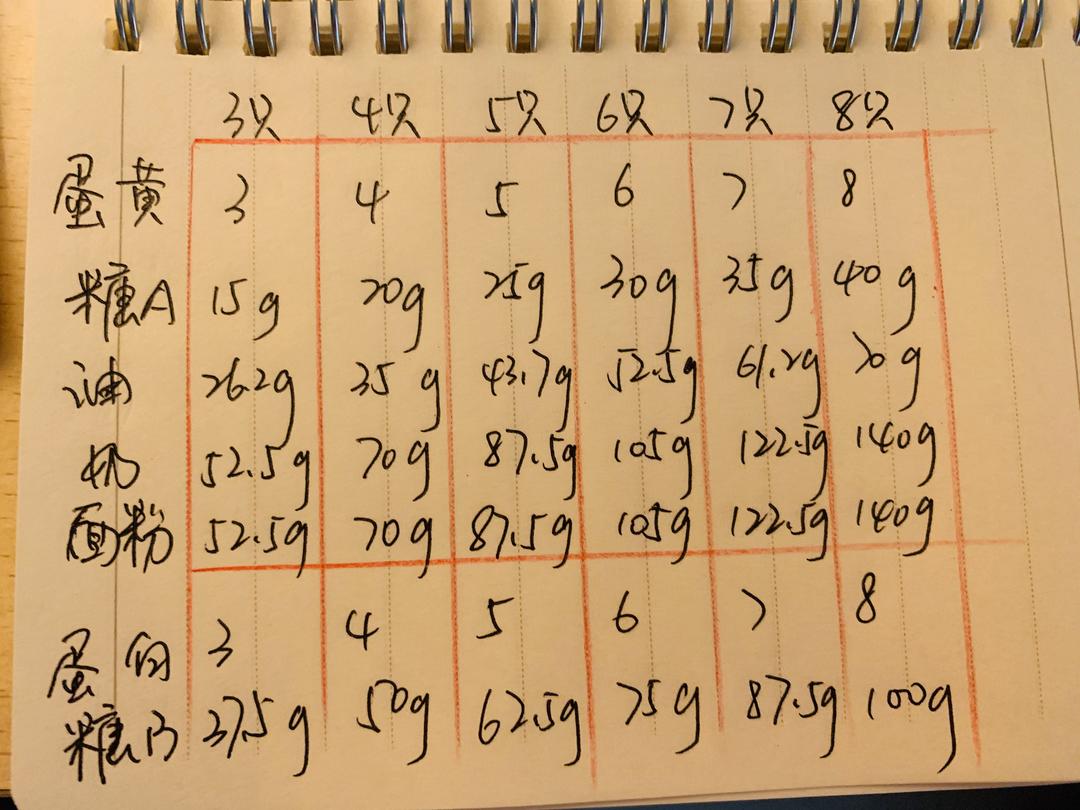 3只 4只 5只 6只 7只 8只
蛋黄 3 4 5 6 7 8
糖A 15g 20g 25g 30g 35g 40g
油 26.2g 35g 43.7g 52.5g 61.2g 70g
奶 52.5g 70g 87.5g 105g 122.5g 140g
面粉 52.5g 70g 87.5g 105g 122.5g 140g
蛋白 3 4 5 6 7 8
糖B 37.5g 50g 62.5g 75g 87.5g 100g